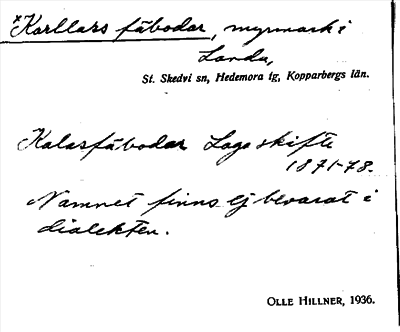 *Karllars fäbodar, myrmark i
Landa,
St. Skedvi sn, Hedemora tg, Kopparbergs län.
Kalasfäbodar Laga skifte
1871-78.
Namnet finns ej bevarat i
dialekten.
OLLE HILLNER, 1936.